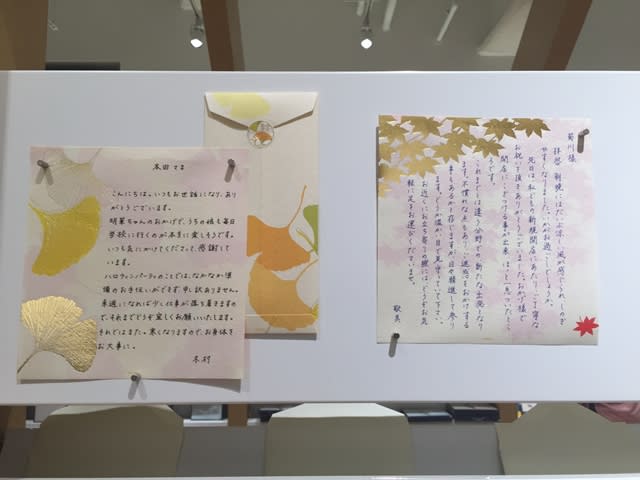 本田さま
こんにちは。いつもお世話になり、あり
がとうございます。
明菜ちゃんのおかげで、うちの娘も毎日
学校に行くのが本当に楽しそうです。
いつも気にかけてくださって、感謝して
います。
ハロウィンパーティのことでは、なかなか準
備のお手伝いができず、申し訳ありません。
来週になれば少し仕事が落ち着きますの
で、それまでどうぞ宜しくお願いいたします。
それではまた。寒くなりますので、お身体を
お大事に。
木村
菊川様
拝啓 朝晩はだいぶ涼しい風が感じられ、しのぎ
やすくなりましたが、いかがお過ごしでしょうか。
先日は私どもの新規開店にあたり、ご丁寧な
お祝いを頂き、ありがとうございました。お陰様で
開店に
これまでとは違う分野での新たな出発となり
ます。不慣れな点もあり、ご迷惑をおかけする
事もあるかと存じますが、日々精進して参り
ます。どうか温かい目で見守って下さい。
お近くにお立ち寄りの際には、どうぞお気
軽に足をお運びくださいませ。
敬具